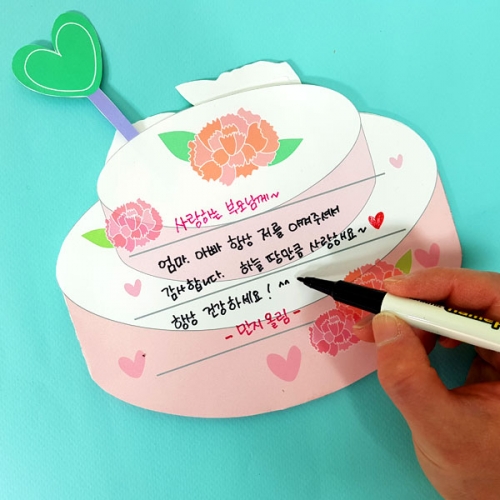 사랑하는 부모님께~
엄마. 아빠 항상 저를 아껴주셔서
감사합니다. 하늘 땅만큼 사랑해요~ ♥
항상 건강하세요! ^^
- 민지 올림 -